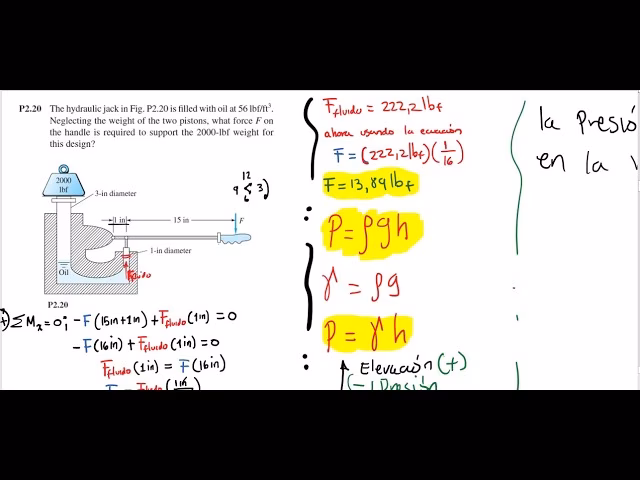 P2.20 The hydraulic jack in Fig. P2.20 is filled with oil at 56 lbf/ft³.
Neglecting the weight of the two pistons, what force F on
the handle is required to support the 2000-lbf weight for
this design?
2000
lbf
3-in diameter
12
9 < 3)
6
1 in
15 in
F
1-in diameter
Oil
Ffluido
P2.20
+) ΣMx=0; -F(15in+1in)+Ffluido(1in)=0
-F(16in)+Ffluido(1in)=0
Ffluido(1in) = F(16in)
Ffluido = 222,2lbf
ahora usando la ecuación
F=(222,2lbf)(1/16)
F=13,89lbf
P=ρgh
γ=ρg
P=γh
Elevación (+)
(-) Presión
la Presió
en la